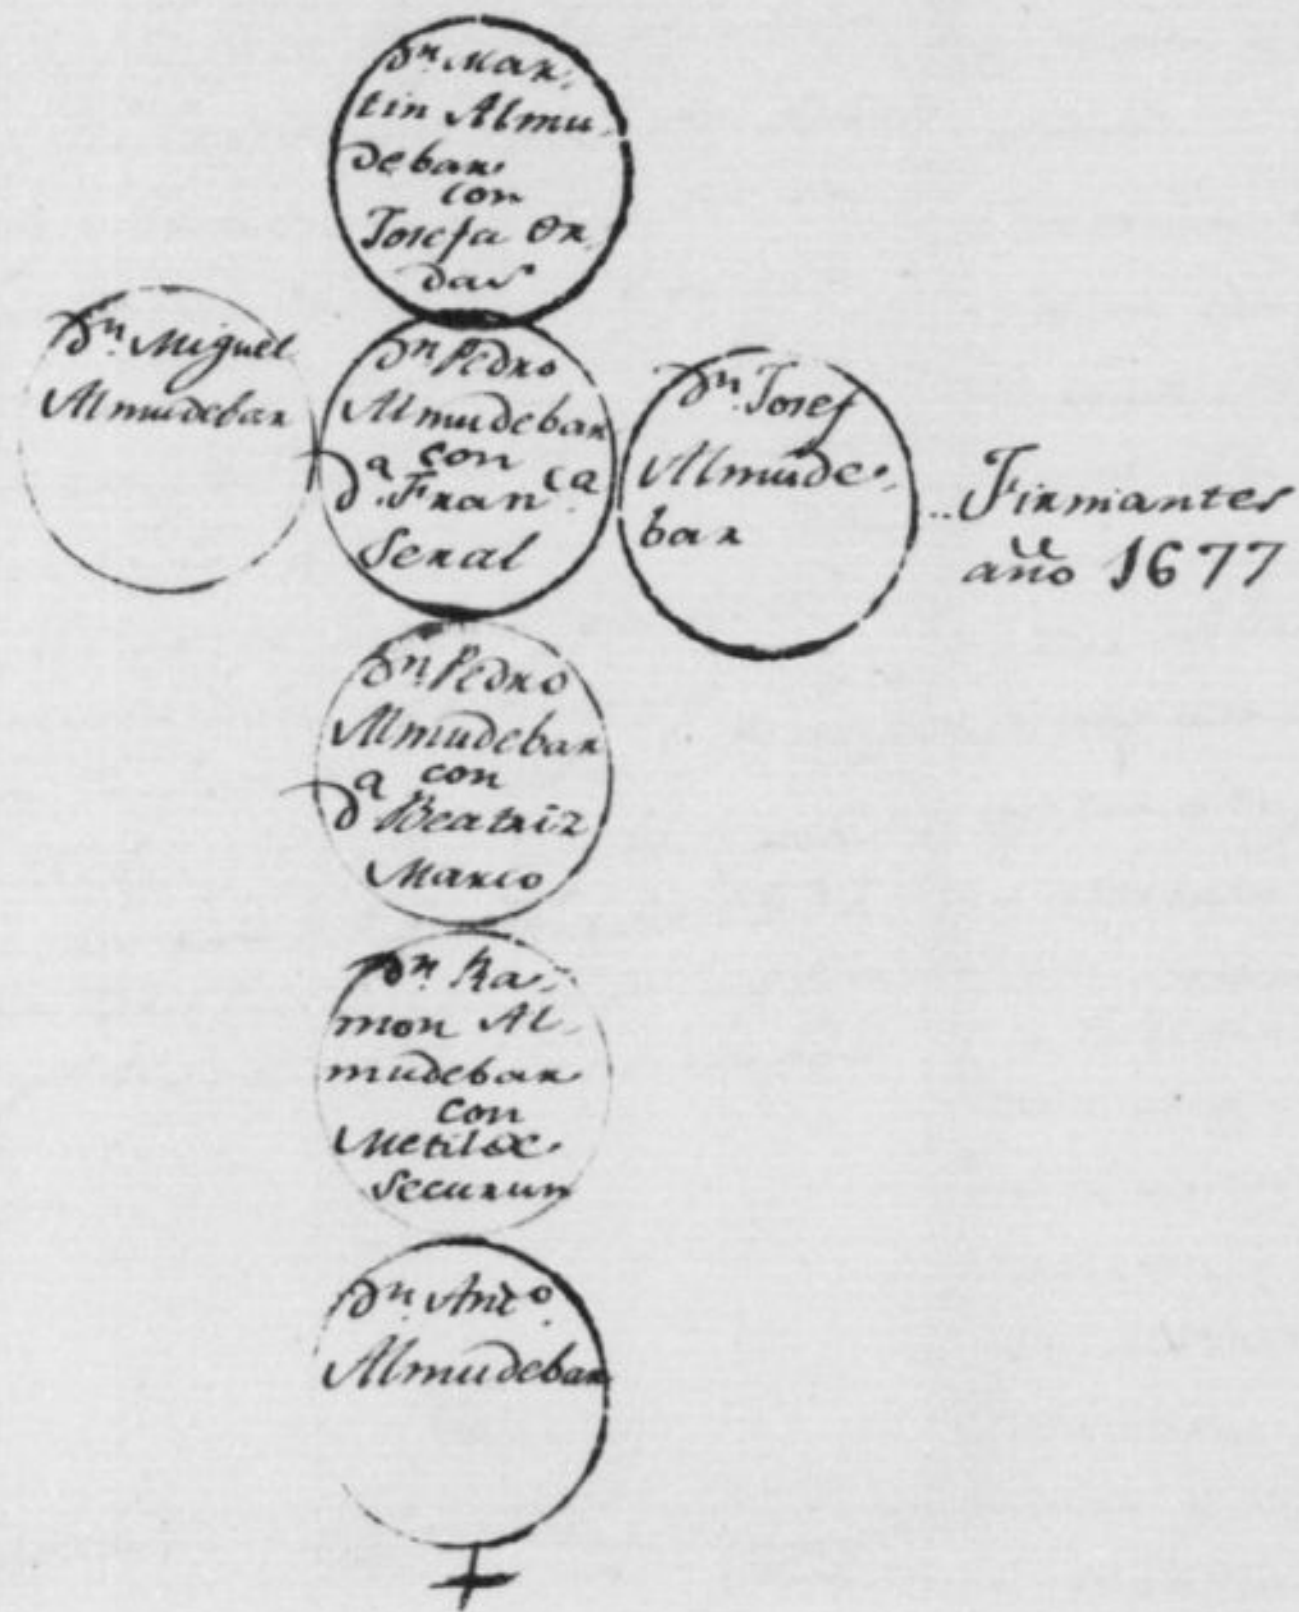 Dn. Mar-
tin Almu-
debar
con
Josefa Or-
das
Dn. Miguel
Almudebar
Dn. Pedro
Almudebar
con
Da. Franca.
Seral
Dn. Josef
Almude-
bar
.. Firmantes
año 1677
Dn. Pedro
Almudebar
con
Da Beatriz
Marco
Dn. Ra-
mon Al-
mudebar
con
Metilde
Securun
Dn. Anto.
Almudebar